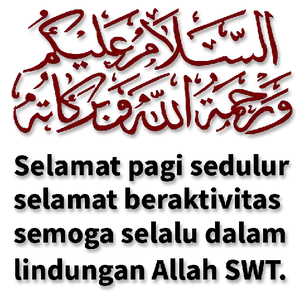 السلام عليكم
ورحمة الله وبركاته
Selamat pagi sedulur
selamat beraktivitas
semoga selalu dalam
lindungan Allah SWT.